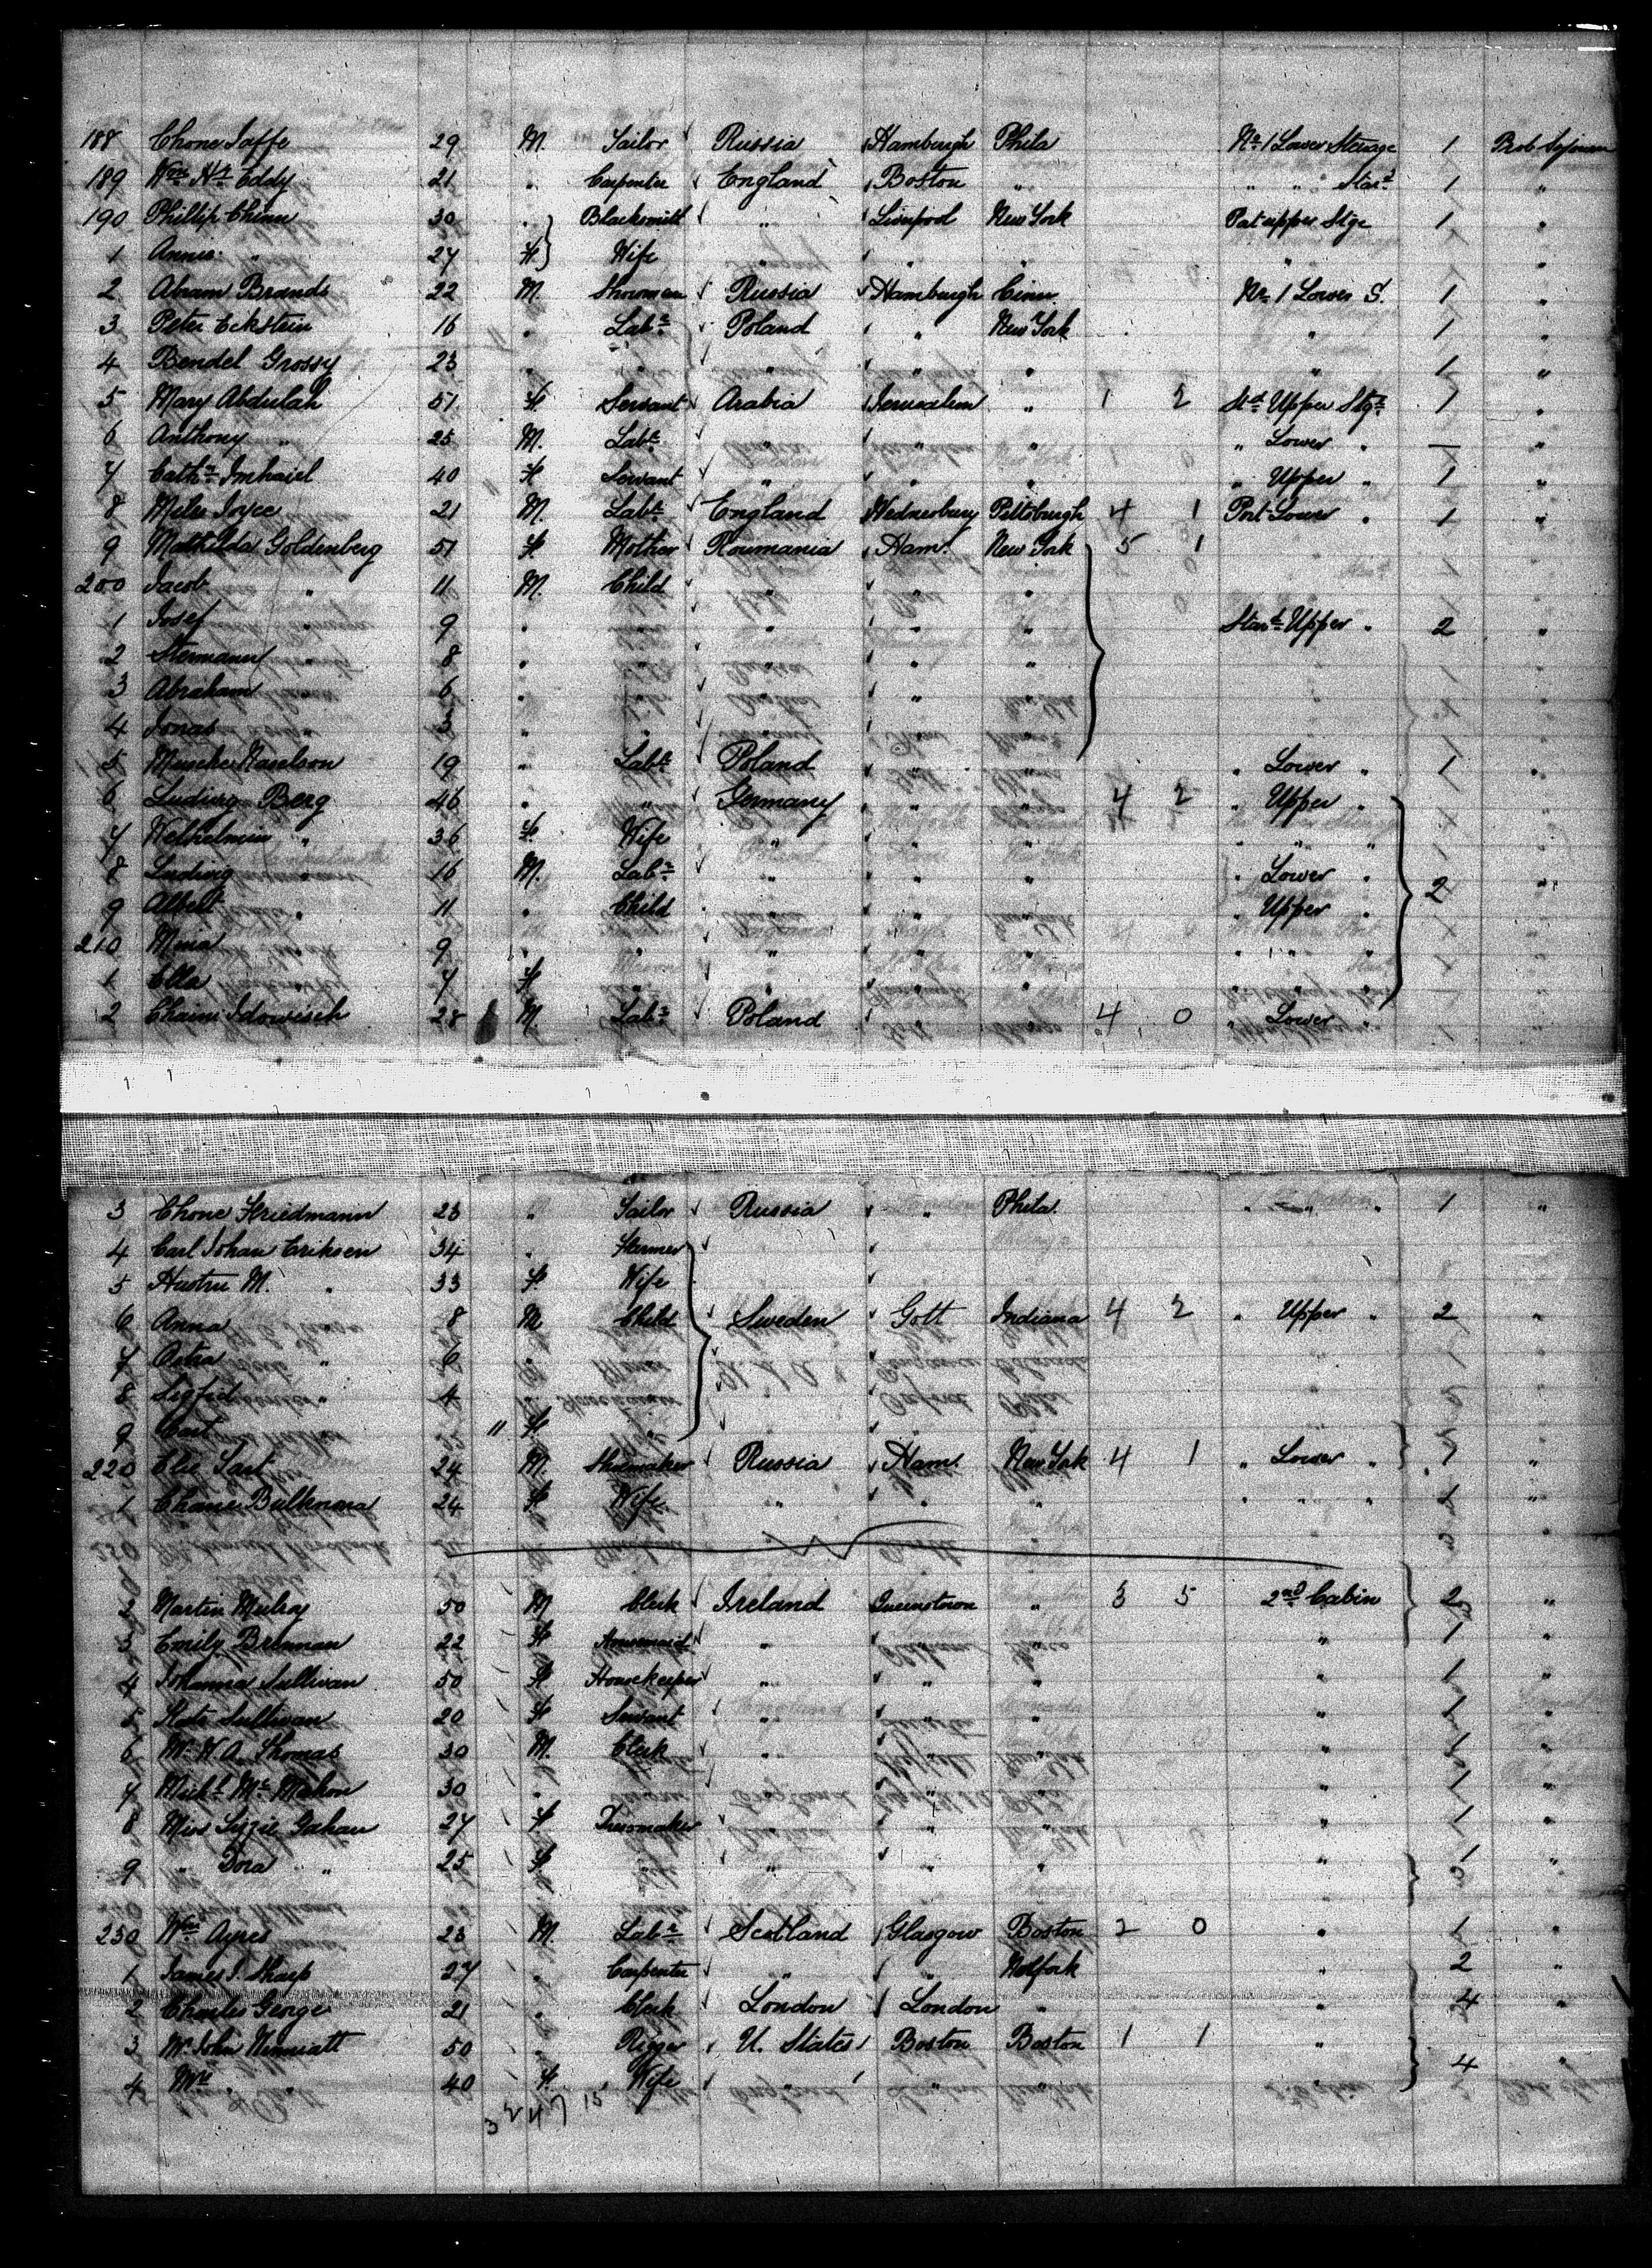 188 Chone Jaffe 29 M. Tailor Russia Hamburgh Phila No 1 Lower Steerage 1 Prob Sojourn
189 Wm Hy Eddy 21 " Carpenter England Boston " " " Star 1 "
190 Phillip Chinn 30 " Blacksmith " Liverpool New York Port upper Stge 1 "
1 Annie " 27 F. Wife " " " " "
2 Abram Brands 22 M. Showman Russia Hamburgh Cinn. No 1 Lower S. 1 "
3 Peter Eckstein 16 " Labr Poland " New York " 1 "
4 Bendel Grossy 23 " " " " " " 1 "
5 Mary Abdulah 51 F. Servant Arabia Jerusalem " 1 2 Std Upper Stge 1 "
6 Anthony " 25 M. Labr " " " " Lower " — "
7 Cathn Imhaiel 40 F. Servant " " " " Upper " 1 "
8 Miles Joyce 21 M. Labr England Wednesbury Pittsburgh 4 1 Port Lower " 1 "
9 Mathilda Goldenberg 51 F. Mother Roumania Ham. New York 5 1
200 Jacob " 11 M. Child " " "
1 Josef " 9 " " " " " Starb Upper " 2 "
2 Hermann " 8 " " " " "
3 Abraham 6 " " " " "
4 Jonas 3 "
5 Musche Naselson 19 " Labr Poland " " " Lower " 1 "
6 Ludwig Berg 46 " " Germany " " 4 2 " Upper "
7 Welhelmin " 36 F. Wife " " " " " "
8 Ludwig 16 M. Labr " " " " Lower " 2 "
9 Albert " 11 " Child " " " " Upper "
210 Mina 9 " " " " " " " "
1 Ella 7 F. " " " "
2 Chaim Idowisch 28 M. Labr Poland " " 4 0 " Lower "
3 Chone Friedmann 23 " Tailor Russia " Phila. " " " 1 "
4 Carl Johan Eriksen 34 " Farmer
5 Hustru M. " 33 F. Wife
6 Anna 8 M Child Sweden Gott Indiana 4 2 " Upper " 2 "
7 Astra " 6
8 Sigfrid " 4
9 Carl " F.
220 Elie Sart 24 M. Shoemaker Russia Ham. New York 4 1 " Lower " 1 "
1 Chane 24 F. Wife " " " " " "
2 Martin Mulroy 50 M Clerk Ireland Queenstown " 3 5 2nd Cabin 2 "
3 Emily Brennan 22 F Housemaid " " 1 "
4 Johanna Sullivan 50 F Housekeeper " " " " 1 "
5 Kate Sullivan 20 F Servant " " " " 1 "
6 Mr W. A. Thomas 30 M. Clerk " " 1 "
7 Michl McMahon 30 " " " 1 "
8 Miss Lizzie Gahan 27 F Dressmaker " " " 1 "
9 " Dora " 25 F. " " " " " 1 "
230 Wm Ayres 23 M. Labr Scotland Glasgow Boston 2 0 " 1 "
1 James J. Sharp 27 " Carpenter " " Nolfork " 2 "
2 Charles George 21 " Clerk London London " " 4 "
3 Mr John 50 " Rigger U. States Boston Boston 1 1 "
4 Mrs 40 F. Wife " 4 "